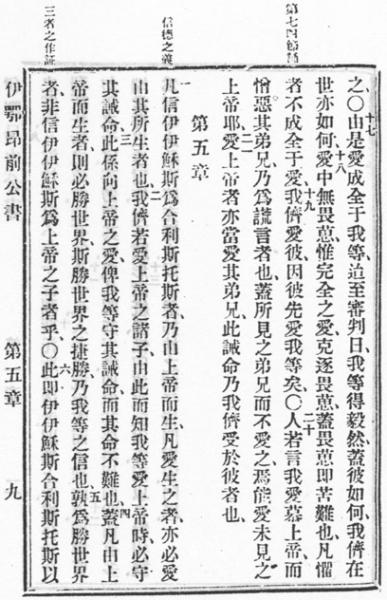 第七四節誦
十七之、○由是愛成全于我等、迨至審判日、我等得毅然、蓋彼如何、我儕在
世亦如何、十八愛中無畏葸、惟完全之愛、克逐畏葸、蓋畏葸卽苦難也、凡懼
者、不成全于愛、十九我儕愛彼、因彼先愛我等矣、○二十人若言我愛慕上帝、而
憎惡其弟兄、乃爲謊言者也、蓋所見之弟兄而不愛之、焉能愛未見之
上帝耶、二一愛上帝者、亦當愛其弟兄、此誡命乃我儕受於彼者也、
第五章
信德之義
一凡信伊伊穌斯爲合利斯托斯者、乃由上帝而生、凡愛生之者、亦必愛
由其所生者也、二我儕若愛上帝之諸子、由此而知我等愛上帝時、必守
其誡命、三此係向上帝之愛、俾我等守其誡命、而其命不難也、四蓋凡由上
帝而生者、則必勝世界、斯勝世界之捷勝、乃我等之信也、五孰爲勝世界
三者之作証
者、非信伊伊穌斯爲上帝之子者乎、○六此卽伊伊穌斯合利斯托斯以
伊鄂昂前公書 第五章 九